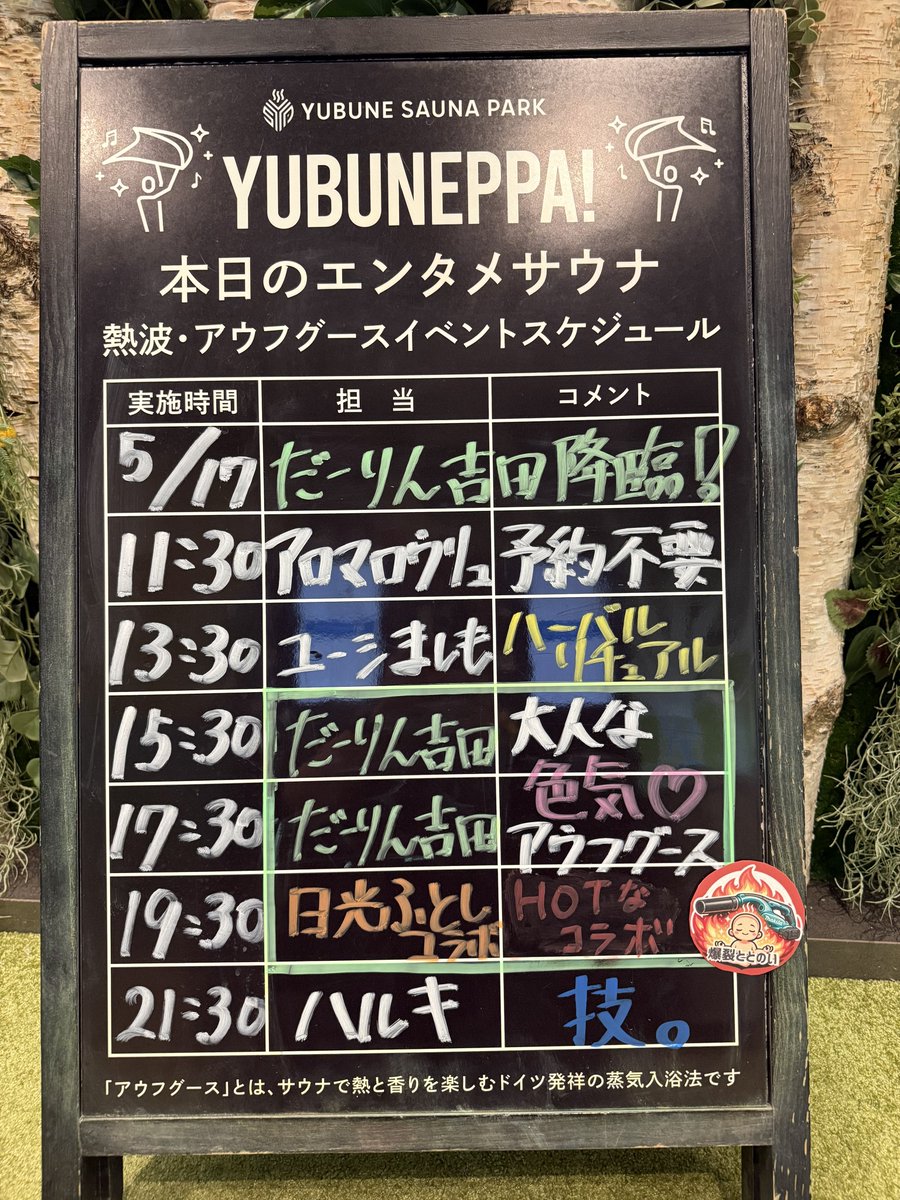 YUBUNE SAUNA PARK
YUBUNEPPA!
本日のエンタメサウナ
熱波・アウフグースイベントスケジュール
実施時間 担当 コメント
5/17 だーりん吉田降臨!
11:30 アロマロウリュ 予約不要
13:30 ユーシましも ハーバルリチュアル
15:30 だーりん吉田 大人な
色気♡
17:30 だーりん吉田 アウフグース
19:30 日光ふとしコラボ HOTなコラボ
爆裂ととのい
21:30 ハルキ 技。
「アウフグース」とは、サウナで熱と香りを楽しむドイツ発祥の蒸気入浴法です